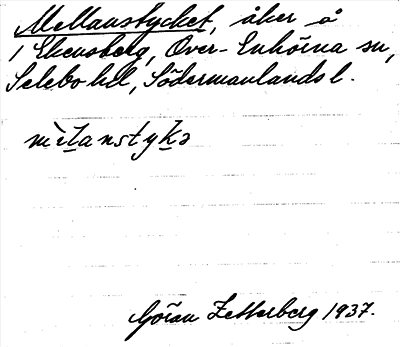 Mellanstycket, åker å
1 Ekensberg, Över-Enhörna sn,
Selebo hd, Södermanlands l.
mèlanstykə
Göran Zetterberg 1937.